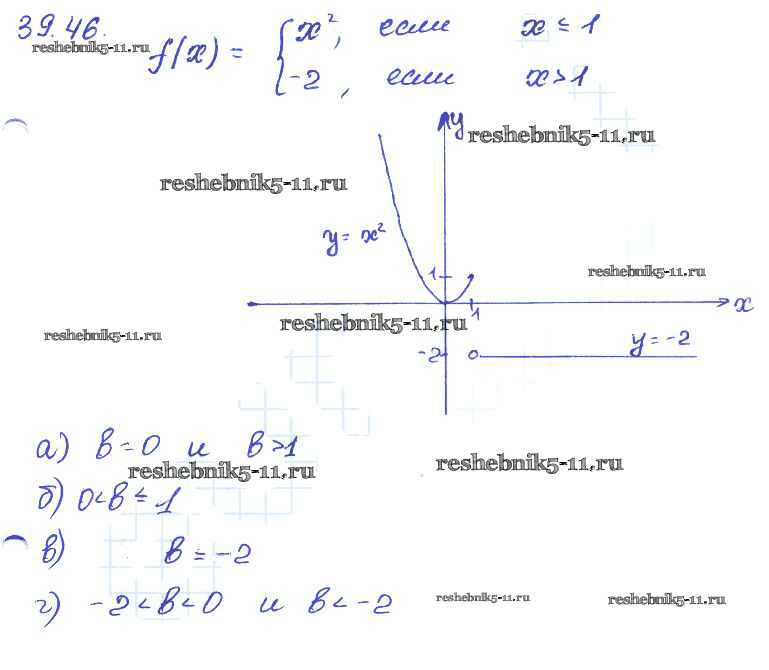 39.46.
reshebnik5-11.ru
f(x) = { x², если x ≤ 1
-2, если x > 1
y
reshebnik5-11.ru
reshebnik5-11.ru
y = x²
1
reshebnik5-11.ru
x
1
reshebnik5-11.ru
reshebnik5-11.ru
y = -2
-2
а) в = 0 и в > 1
reshebnik5-11.ru
reshebnik5-11.ru
б) 0 < в ≤ 1
в) в = -2
г) -2 < в < 0 и в < -2
reshebnik5-11.ru
reshebnik5-11.ru